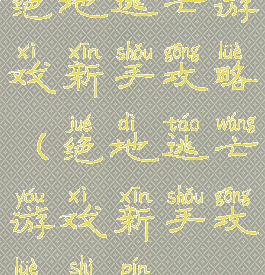 绝地逃亡游
xì xīn shǒu gōng lüè
戏新手攻略
jué dì táo wáng
（绝地逃亡
yóu xì xīn shǒu gōng
游戏新手攻
lüè shì pín